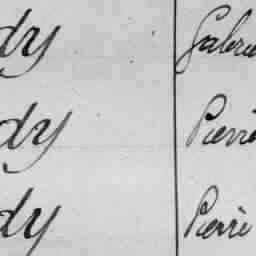 dy Gabrie
dy Pierre
dy Pierre